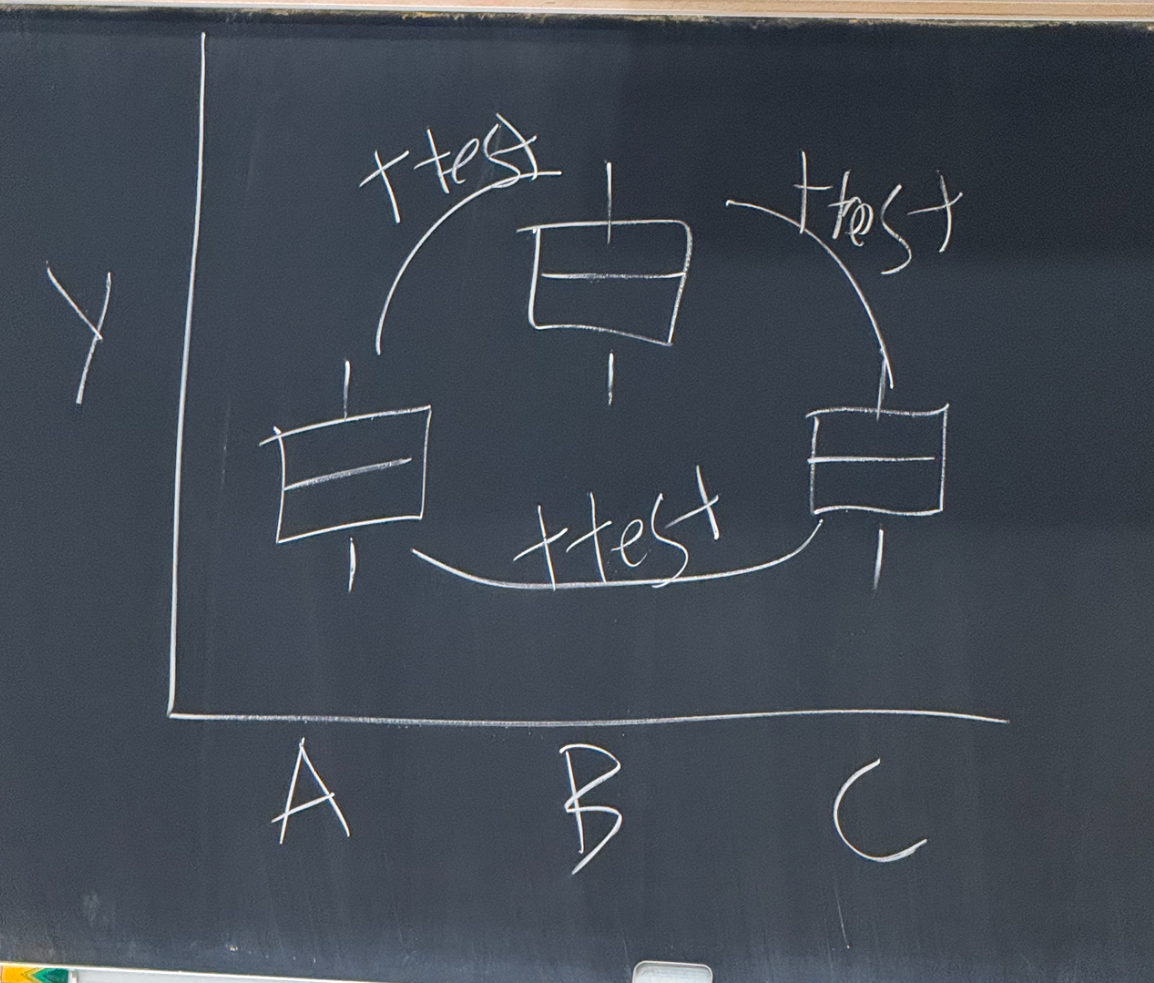 t test
t test
Y
t test
A B C